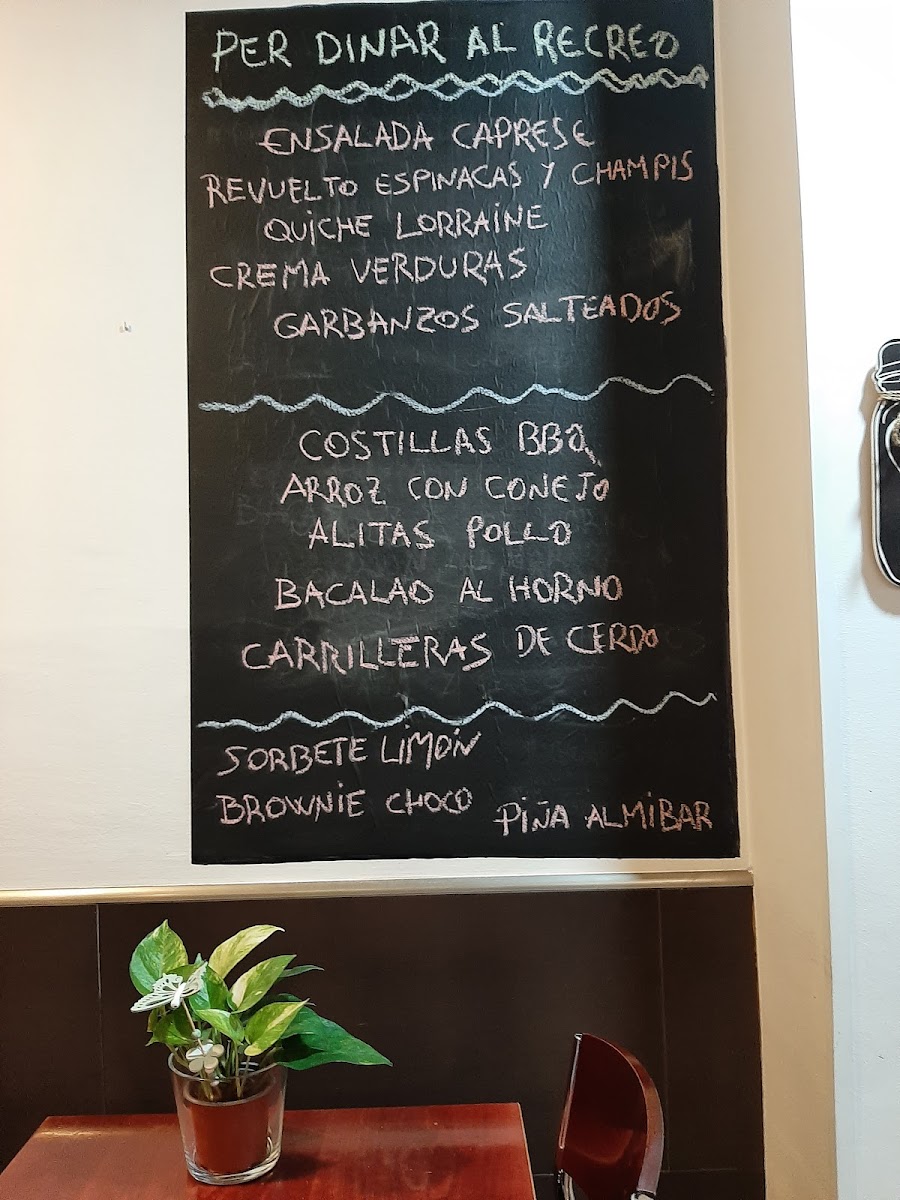 PER DINAR AL RECREO
ENSALADA CAPRESE
REVUELTO ESPINACAS Y CHAMPIS
QUICHE LORRAINE
CREMA VERDURAS
GARBANZOS SALTEADOS
COSTILLAS BBQ
ARROZ CON CONEJO
ALITAS POLLO
BACALAO AL HORNO
CARRILLERAS DE CERDO
SORBETE LIMÓN
BROWNIE CHOCO
PIÑA ALMIBAR